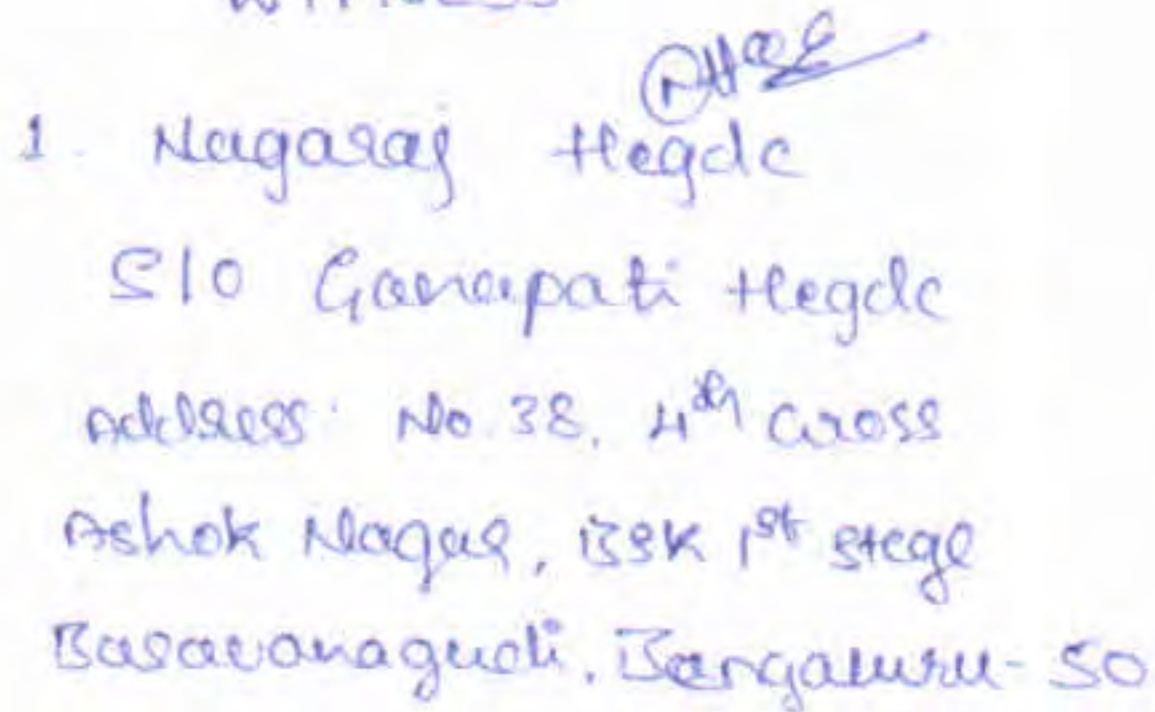 1. Nagaraj Hegde
S/o Ganapati Hegde
Address: No. 38, 4th Cross
Ashok Nagar, BSK 1st Stage
Basavanagudi, Bengaluru - 50